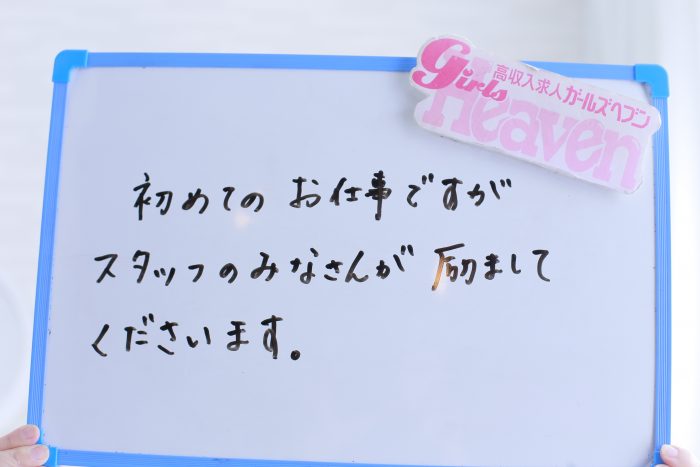 Girls Heaven
高収入求人ガールズヘブン
初めてのお仕事ですが
スタッフのみなさんが励まして
くださいます。